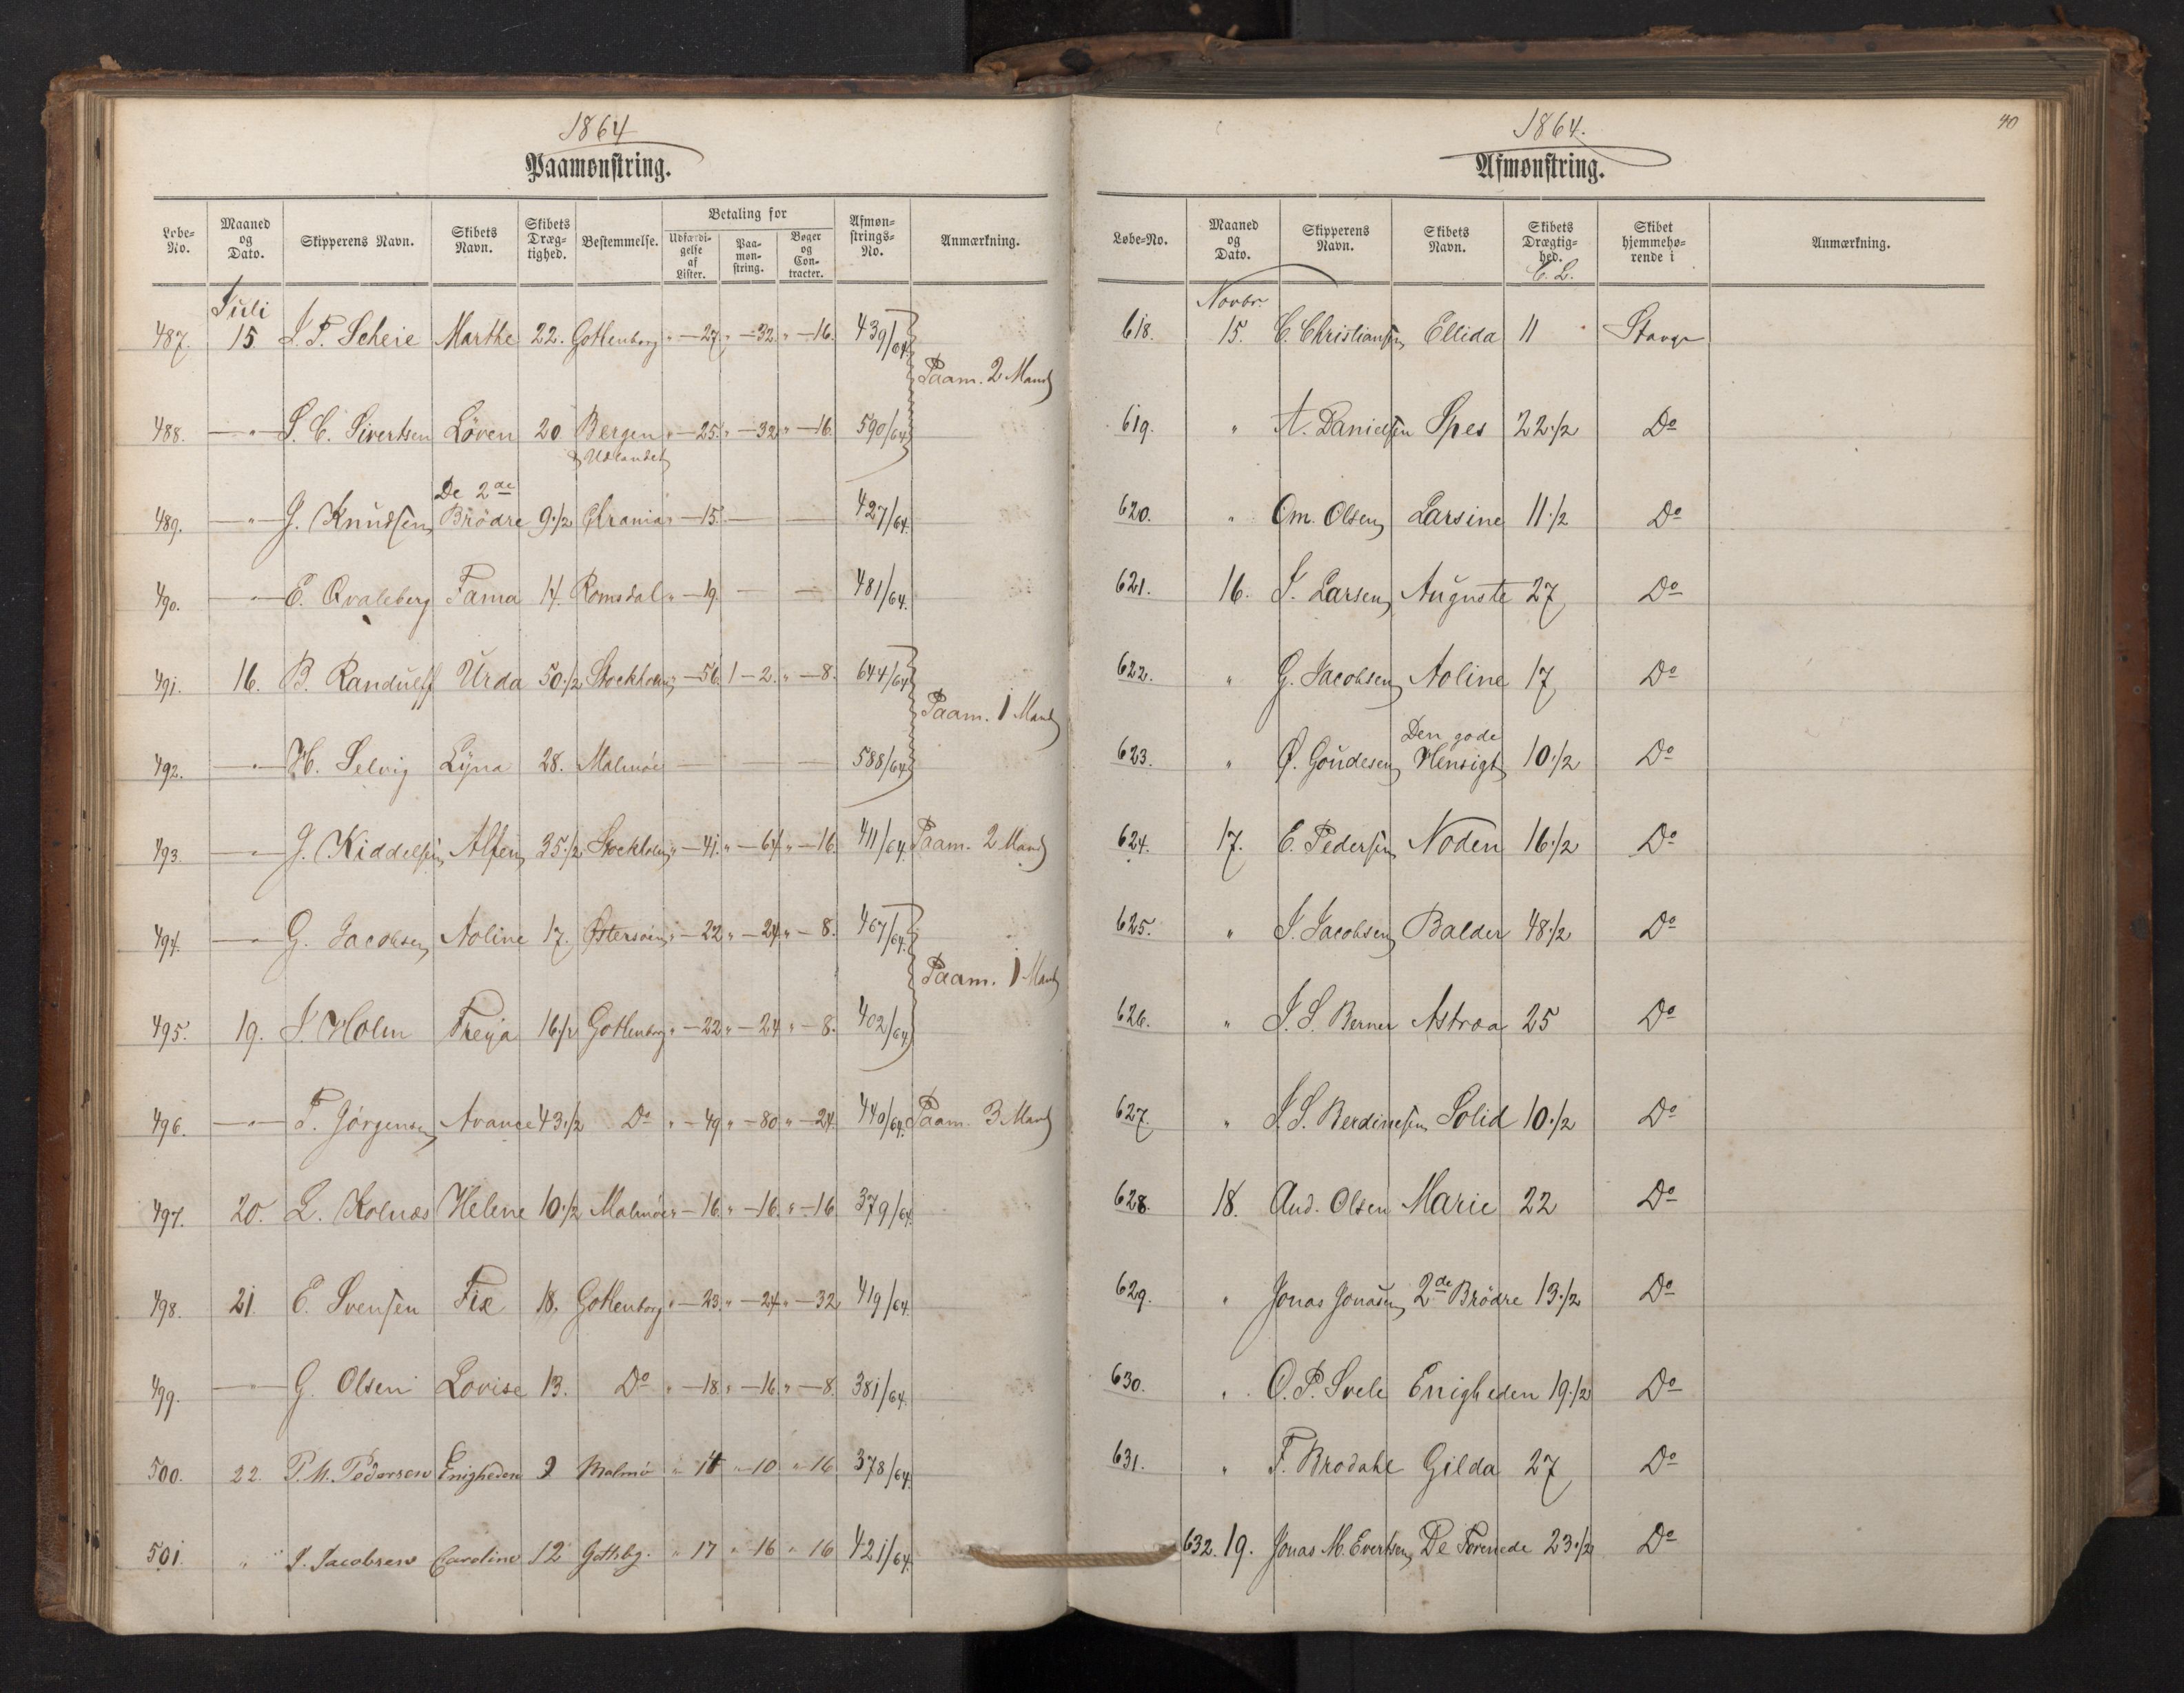 1864
Paamønstring.
Løbe-No. Maaned og Dato. Skipperens Navn. Skibets Navn. Skibets Drægtighed. Bestemmelse. Betaling for Udfærdigelse af Lister. Paamønstring. Bøger og Contracter. Afmønstrings-No. Anmærkning.
Juli
487. 15 J. P. Scheie Marthe 22. Gothenborg " — 27. " — 32. " — 16. 439/64
Paam. 2 Mand
488. — " — S. C. Sivertsen Löven 20 Bergen " — 25. " — 32 " — 16. 590/64
& Udlandet
De 2de
489. — " — G. Knudsen Brödre 9 1/2 Chrania " — 15. — — 427/64.
490. — " — E. Qvaleberg Fama 14. Romsdal " — 19. — — 481/64.
491. 16. B. Randulff Urda 50 1/2 Stockholm " — 56. 1 — 2. " — 8. 644/64
Paam. 1 Mand
492. — " — H. Selvig Lÿna 28. Malmöe — — — 588/64
493. — " — G. Kiddelsen, Alfen, 35 1/2 Stockholm " — 41. " — 64 " — 16. 411/64. Paam. 2 Mand
494. — " — G. Jacobsen Aoline 17. Østersöen " — 22 " — 24 " — 8. 467/64.
Paam. 1 Mand
495. 19. J. Holm Freya 16 1/2 Gothenborg " — 22 " — 24 " — 8. 402/64
496. — " — T. Jörgensen Avance 43 1/2 Do " — 49 " — 80 " — 24 440/64. Paam. 3 Mand
497. 20. L. Kolnæs Helene 10 1/2 Malmöe " — 16. " — 16. " — 16 379/64
498. 21. E. Svensen Fix 18. Gothenborg " — 23. " — 24 " — 32 419/64.
499. — " — G. Olsen Lovise 13. Do " — 18. " — 16 " — 8. 381/64.
500. 22. P. M. Pedersen Enigheden 9 Malmö " 14 " — 10 " 16 378/64.
501. " J. Jacobsen Caroline 12 Gothbg. " 17 " 16 " 16 421/64.
1864.
40
Afmønstring.
Løbe-No. Maaned og Dato. Skipperens Navn. Skibets Navn. Skibets Drægtighed. Skibet hjemmehørende i Anmærkning.
C. L.
Novbr.
618. 15. C. Christiansen Ellida 11 Stavgr
619. " A. Danielsen Spes 22 1/2 Do
620. " Om. Olsen Larsine 11 1/2 Do
621. 16. S. Larsen Auguste 27 Do
622. " G. Jacobsen Aoline 17 Do
Den gode
623. " Ø. Goudesen Hensigt 10 1/2 Do
624. 17. E. Pedersen Noden 16 1/2 Do
625. " J. Jacobsen Balder 48 1/2 Do
626. " J. S. Berner Astræa 25 Do
627. " J. S. Berdinesen Solid 10 1/2 Do
628. 18. And. Olsen Marie 22 Do
629. " Jonas Jonasen 2de Brödre 13 1/2 Do
630. " O. P. Svele Enigheden 19 1/2 Do
631. " F. Brodahl Gilda 27 Do
632. 19. Jonas M. Evertsen, De Forenede 23 1/2 Do